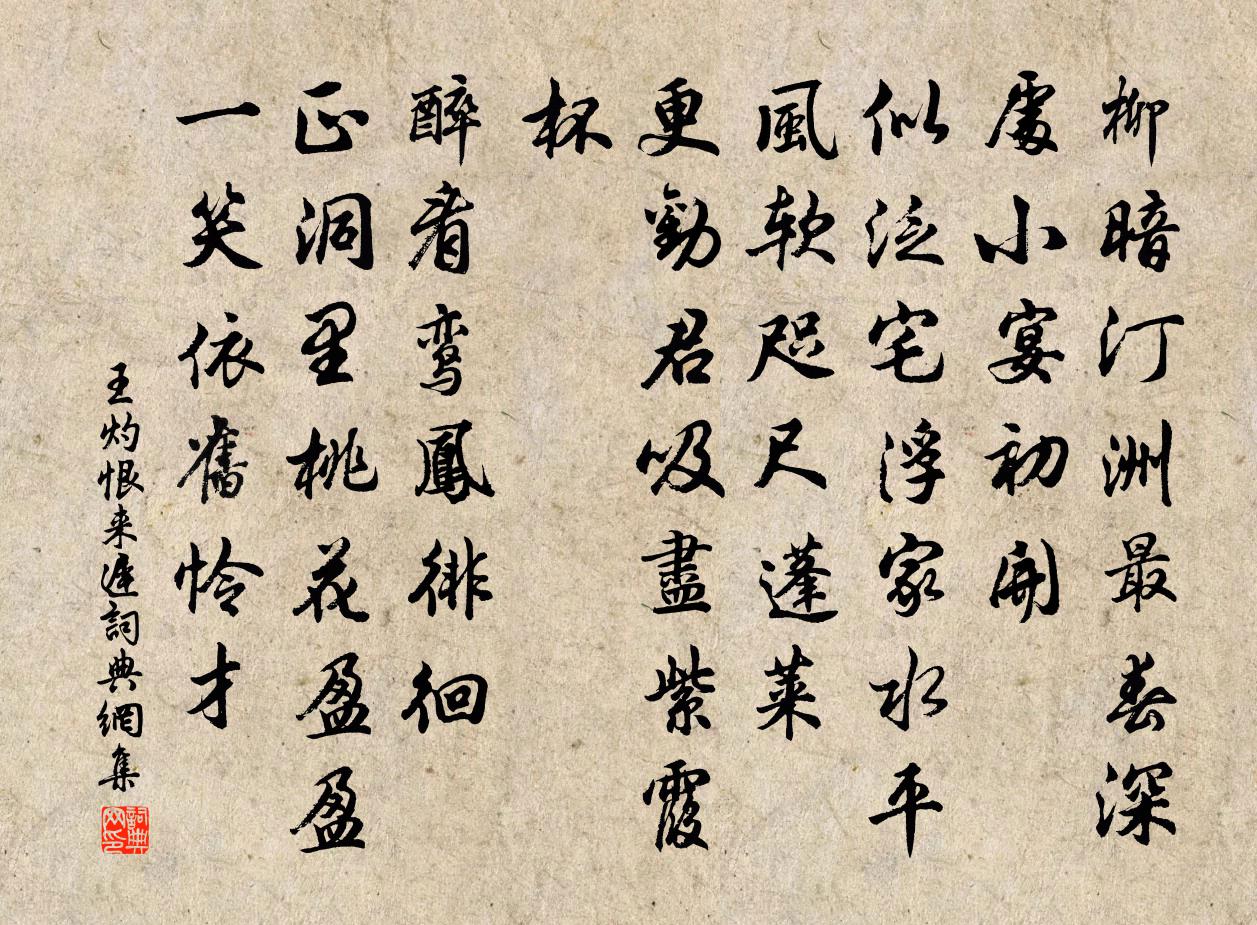 柳暗汀洲最春深
處小宴初開
似泛宅浮家水平
風软咫尺蓬萊
更勸君吸盡紫霞
杯
醉看鸾鳳徘徊
正洞里桃花盈盈
一笑依舊怜才
王灼恨来遲詞典網集
詞典
网印